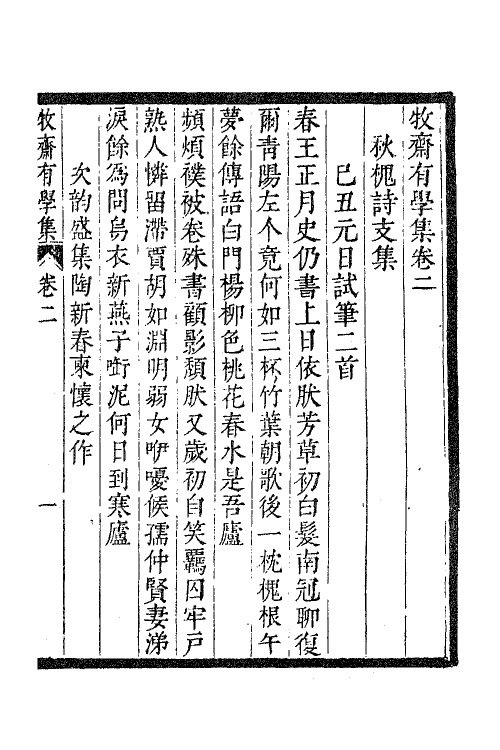 牧齋有學集卷二
秋槐詩支集
己丑元日試筆二首
春王正月史仍書上日依然芳草初白髮南冠聊復
爾青陽左个竟何如三杯竹葉朝歌後一枕槐根午
夢餘傳語白門楊柳色桃花春水是吾廬
頻煩襆被卷殊書顧影頹然又歲初自笑羈囚牢戶
熟人憐留滯賈胡如淵明弱女咿嚘候孺仲賢妻涕
淚餘爲問烏衣新燕子銜泥何日到寒廬
次韵盛集陶新春柬懷之作
牧齋有學集 卷二 一